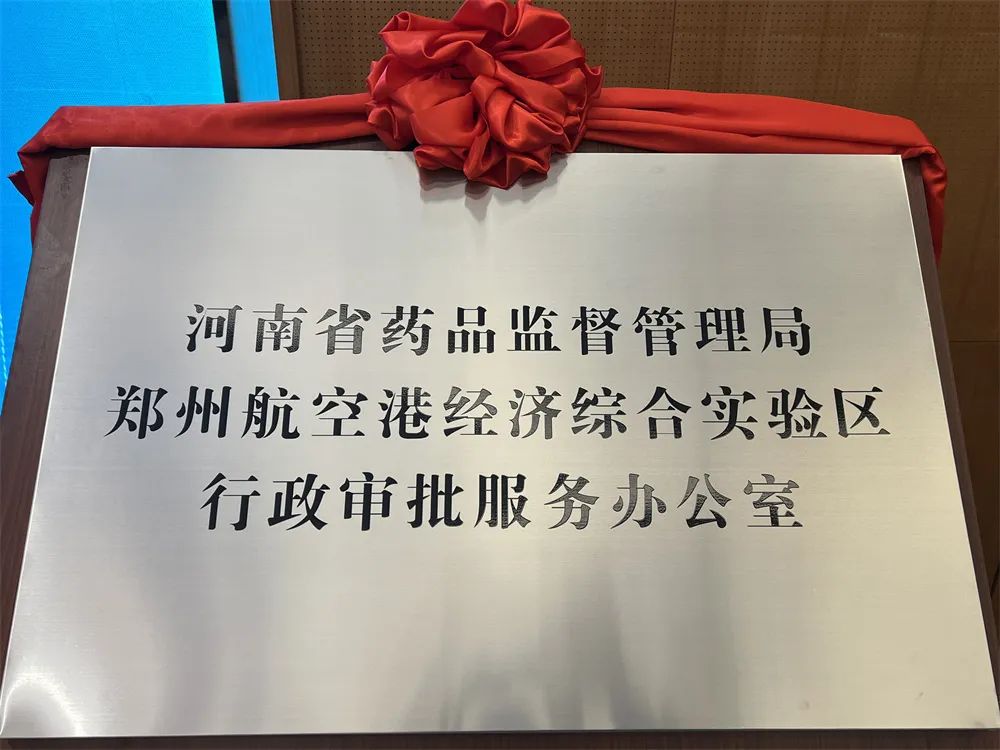 河南省药品监督管理局
郑州航空港经济综合实验区
行政审批服务办公室